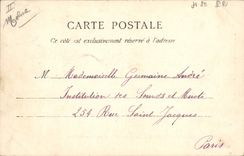 CARTE POSTALE
Ce côté est exclusivement réservé à l'adresse
M Mademoiselle Germaine André
Institution des Sourds et Muets
254 Rue Saint Jacques
Paris